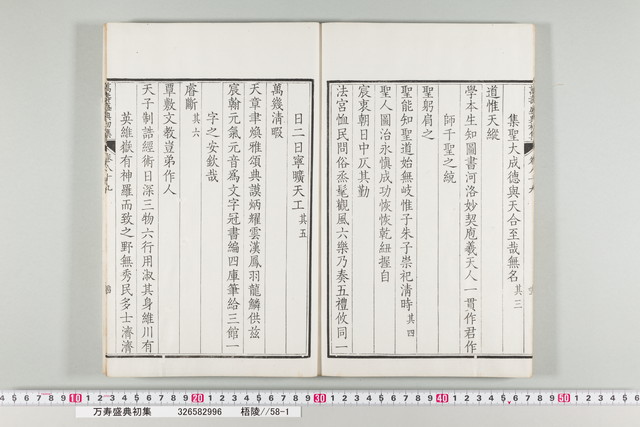 集聖大成德與天合至哉無名其三
道惟天縱
學本生知圖書河洛妙契庖羲天人一貫作君作
師千聖之統
聖躬肩之
聖能知聖道始無岐惟子朱子崇祀清時其四
聖人圖治永愼成功恢恢乾紐握自
宸衷朝日中仄其勤
法宮恤民問俗烝髦觀風六樂乃奏五禮攸同一
日二日寧曠天工其五
萬幾清暇
天章聿煥雅頌典謨炳耀雲漢鳳羽龍鱗供玆
宸翰元氣元音爲文字冠書編四庫筆給三館一
字之安欽哉
睿斷其六
覃敷文教豈弟作人
天子制誥經術日深三物六行用淑其身維川有
英維嶽有神羅而致之野無秀民多士濟濟
10 20 30 40 50
万寿盛典初集 326582996 梧陵//58-1